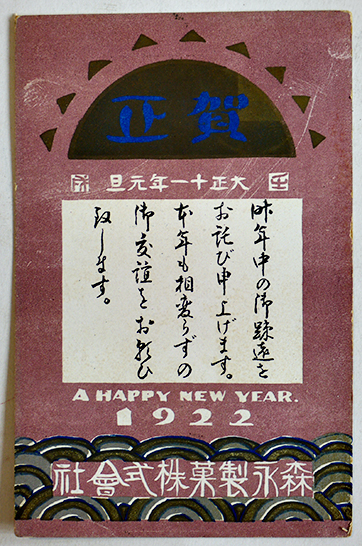 賀正
大正十一年元旦
昨年中の御疎遠を
お詫び申上げます。
本年も相変らずの
御交誼をお願ひ
致します。
A HAPPY NEW YEAR.
1922
森永製菓株式會社